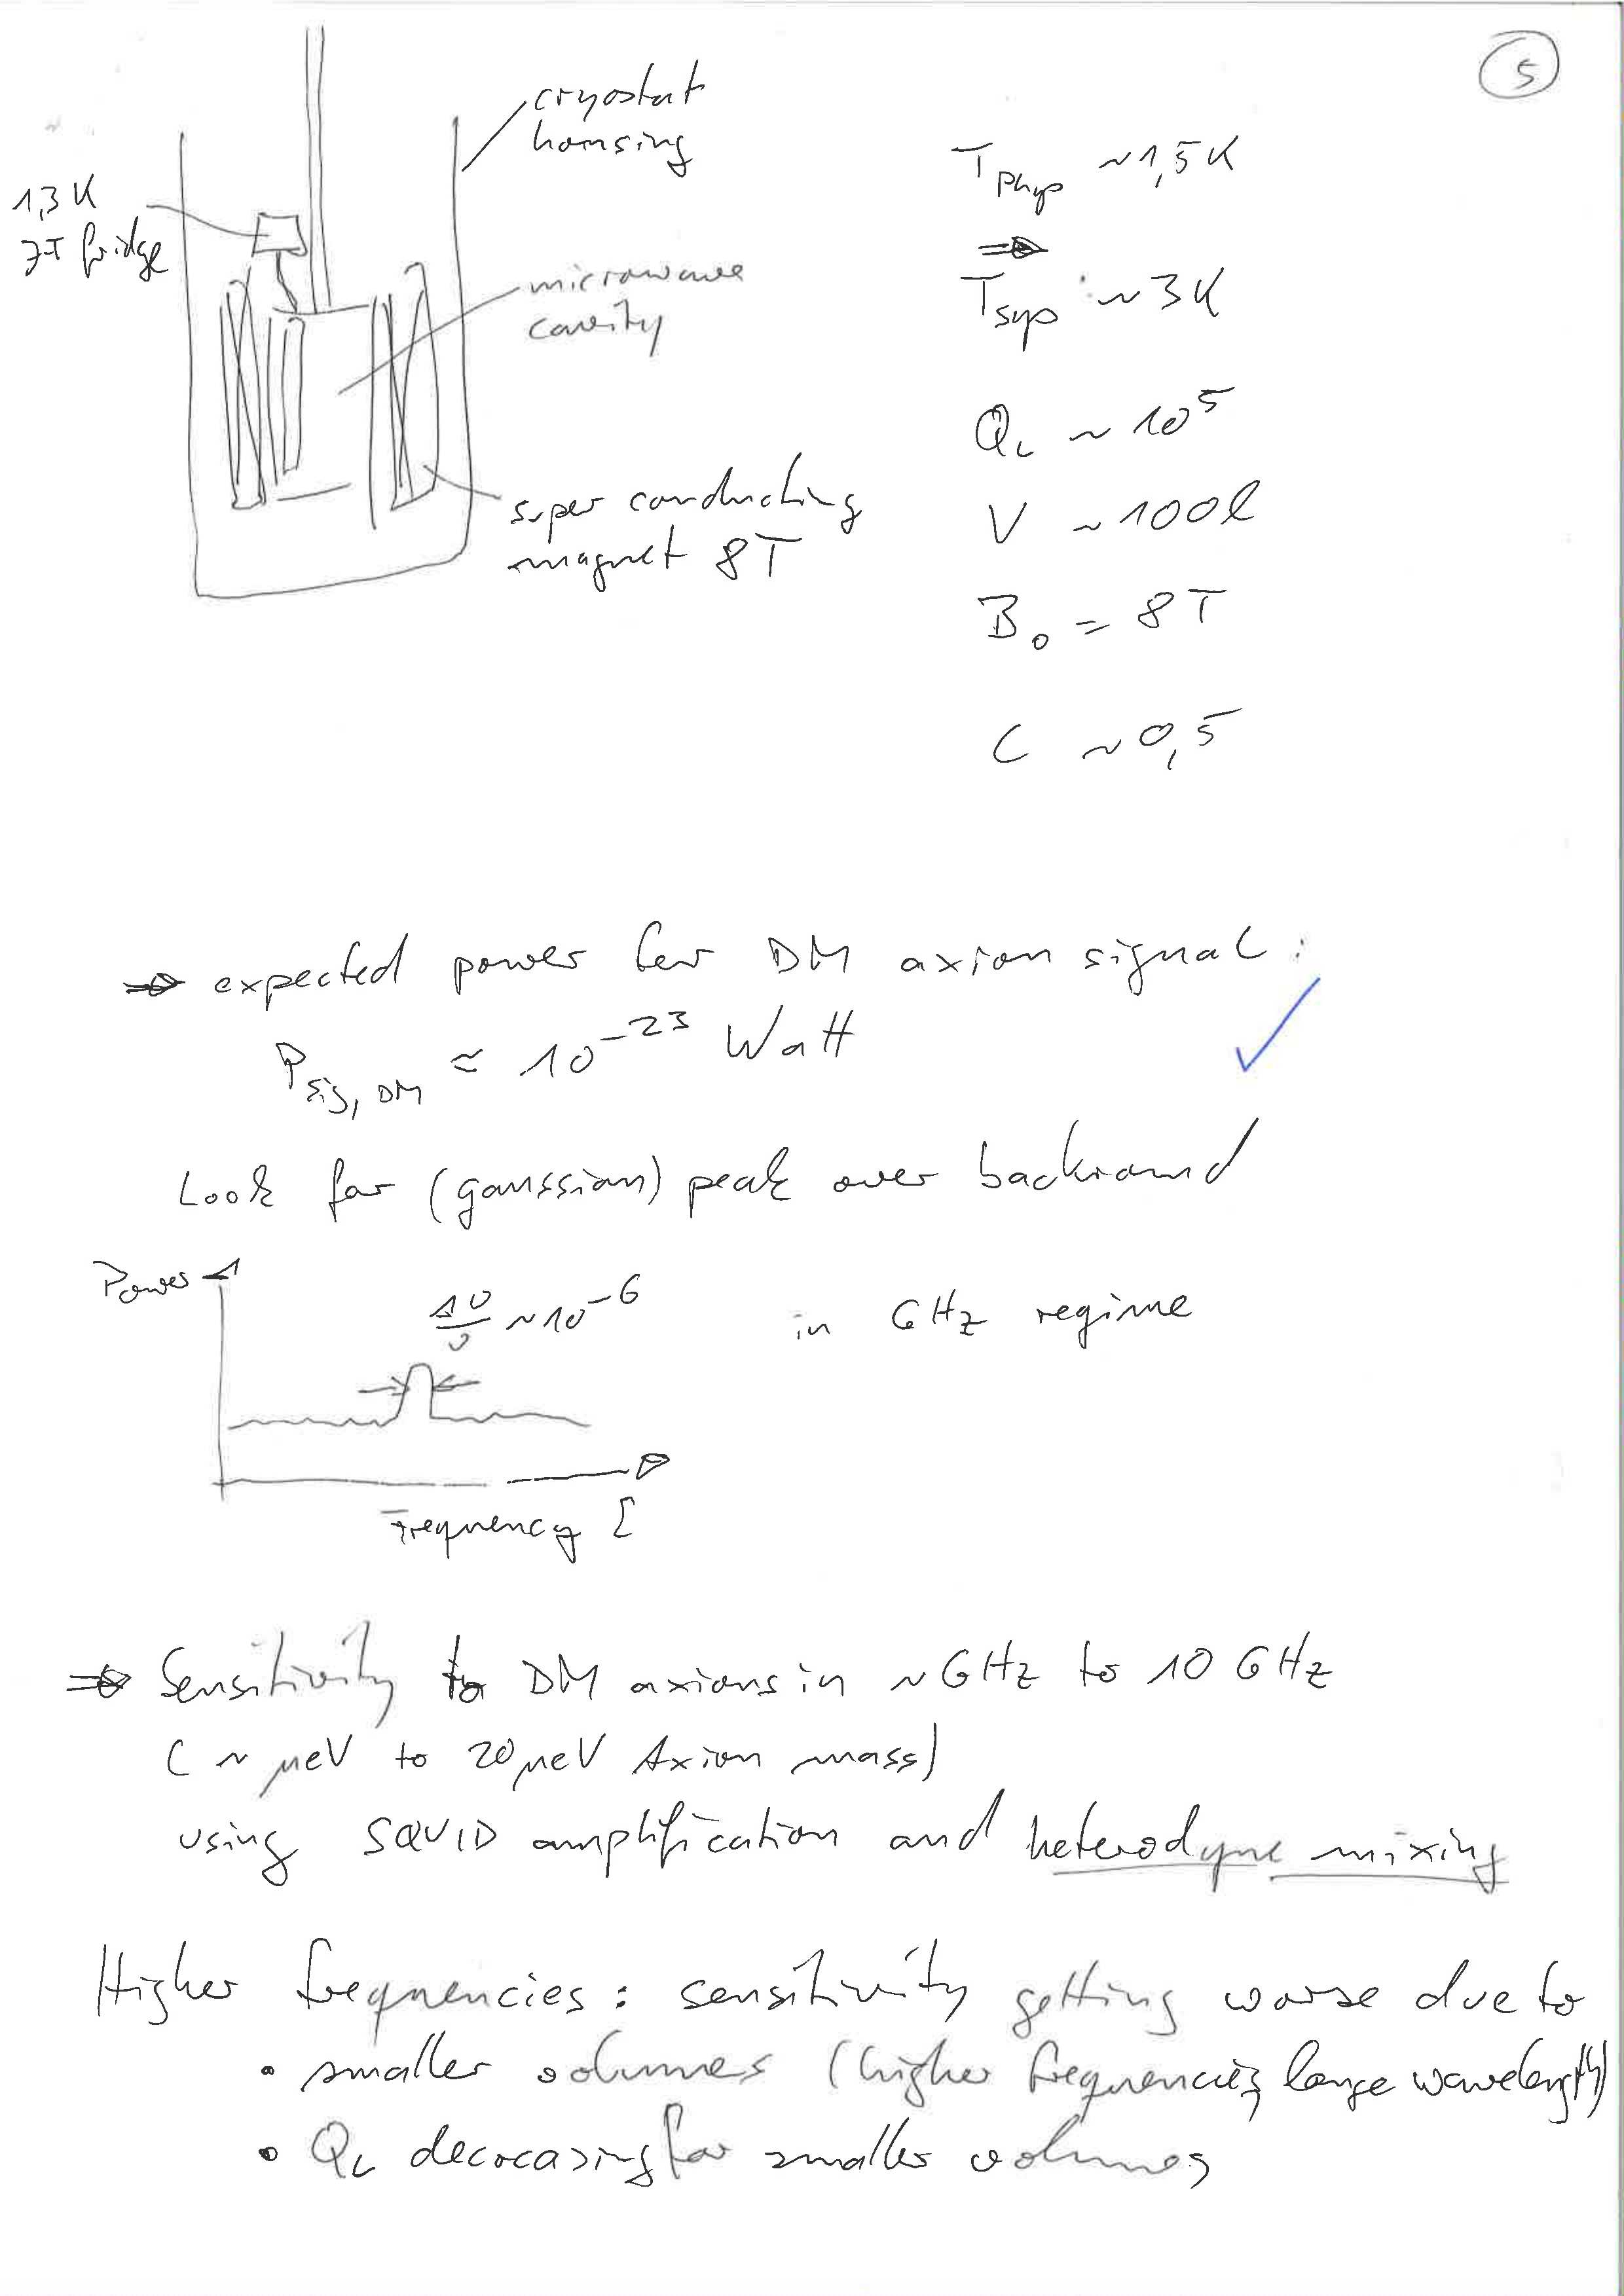 5
cryostat
housing
1,3 K
JT fridge
microwave
cavity
super conducting
magnet 8T
T_phys ~1,5K
⇒
T_sys : ~3K
Q_L ~ 10^5
V ~100l
B_0 = 8T
C ~0,5
⇒ expected power for DM axion signal:
P_sig, DM ≈ 10^-23 Watt
✓
Look for (gaussian) peak over backround
Power
Δν/ν ~10^-6 in GHz regime
Frequency [
⇒ Sensitivity to DM axions in ~GHz to 10 GHz
(~ μeV to 20μeV Axion mass)
using SQUID amplification and heterodyne mixing
Higher frequencies: sensitivity getting worse due to
• smaller volumes (higher frequencies, large wavelength)
• Q_L decreasing for smaller volumes